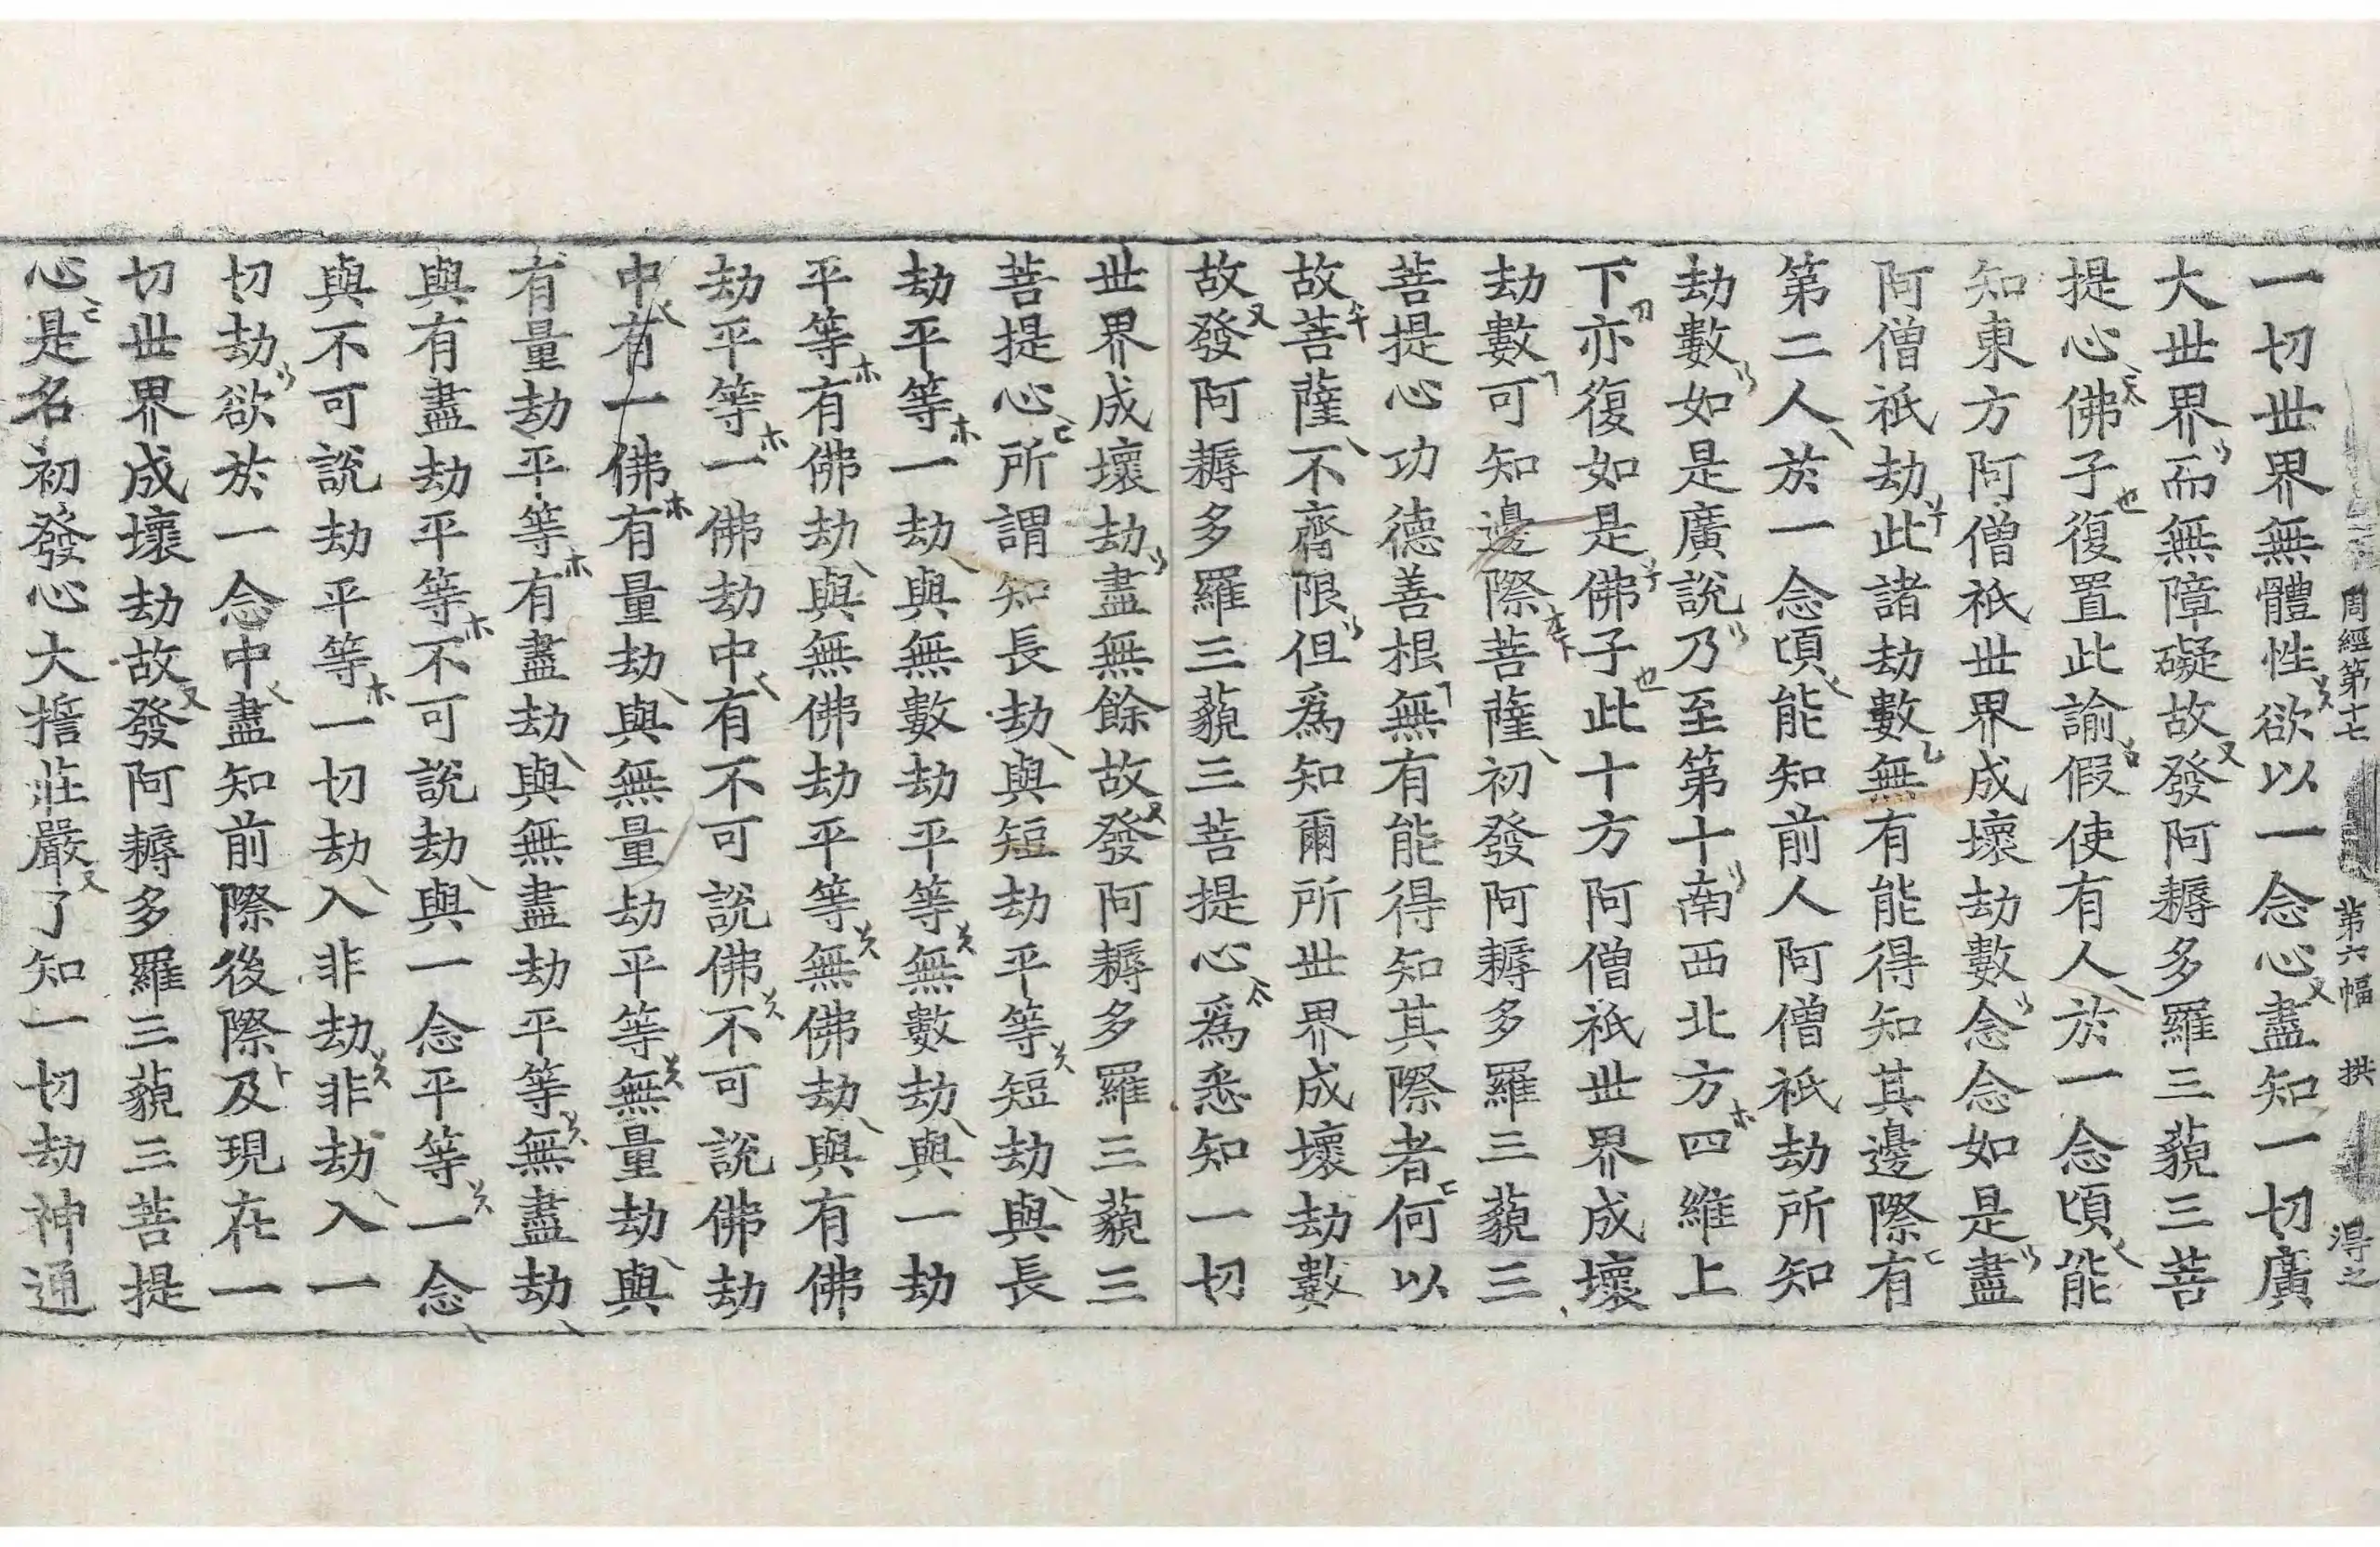 周經第十七 第六幅 拱 得之
一切世界無體性欲以一念心盡知一切廣
大世界而無障礙故發阿耨多羅三藐三菩
提心佛子復置此諭假使有人於一念頃能
知東方阿僧祇世界成壞劫數念念如是盡
阿僧祇劫此諸劫數無有能得知其邊際有
第二人於一念頃能知前人阿僧祇劫所知
劫數如是廣說乃至第十南西北方四維上
下亦復如是佛子此十方阿僧祇世界成壞
劫數可知邊際菩薩初發阿耨多羅三藐三
菩提心功德善根無有能得知其際者何以
故菩薩不齊限但爲知爾所世界成壞劫數
故發阿耨多羅三藐三菩提心爲悉知一切
世界成壞劫盡無餘故發阿耨多羅三藐三
菩提心所謂知長劫與短劫平等短劫與長
劫平等一劫與無數劫平等無數劫與一劫
平等有佛劫與無佛劫平等無佛劫與有佛
劫平等一佛劫中有不可說佛不可說佛劫
中有一佛有量劫與無量劫平等無量劫與
有量劫平等有盡劫與無盡劫平等無盡劫
與有盡劫平等不可說劫與一念平等一念
與不可說劫平等一切劫入非劫非劫入一
切劫欲於一念中盡知前際後際及現在一
切世界成壞劫故發阿耨多羅三藐三菩提
心是名初發心大誓莊嚴了知一切劫神通